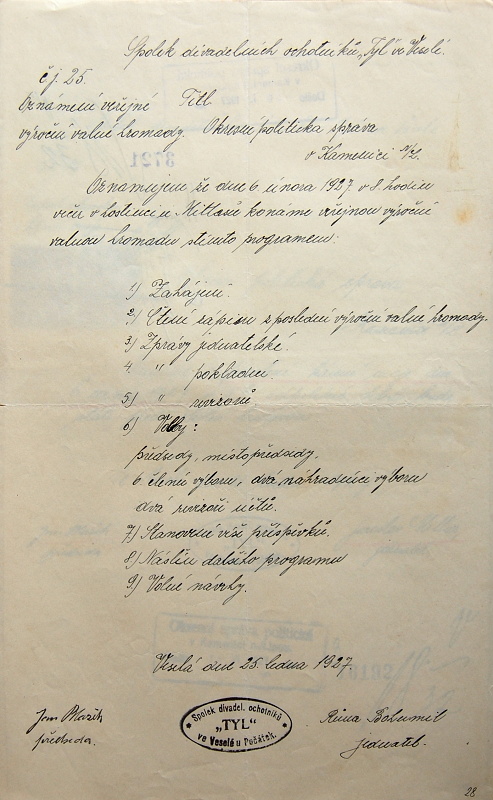 Spolek divadelních ochotníků „Tyl" ve Veselé.
čj. 25.
Oznámení veřejné Titl.
výroční valné hromady. Okresní politická správa
v Kamenici n/L.
Oznamujem že dne 6. února 1927 v 8 hodin
večer v hostinci u Mitlasů konáme veřejnou výroční
valnou hromadu stímto programem:
1) Zahájení.
2) Čtení zápisu z poslední výroční valné hromady.
3) Zprávy jednatelské.
4 " pokladní.
5) " revisorů.
6) Volby:
předsedy, místopředsedy.
6 členů výboru, dvá náhradníci výboru
dvá revisoři účtů.
7) Stanovení výší příspěvků.
8) Nástin dalšího programu
9) Volné návrhy.
Veselá dne 25. ledna 1927.
Jan
předseda.
Spolek divadel. ochotníků
„TYL"
ve Veselé u Počátek.
Bohumil
jednatel.
28